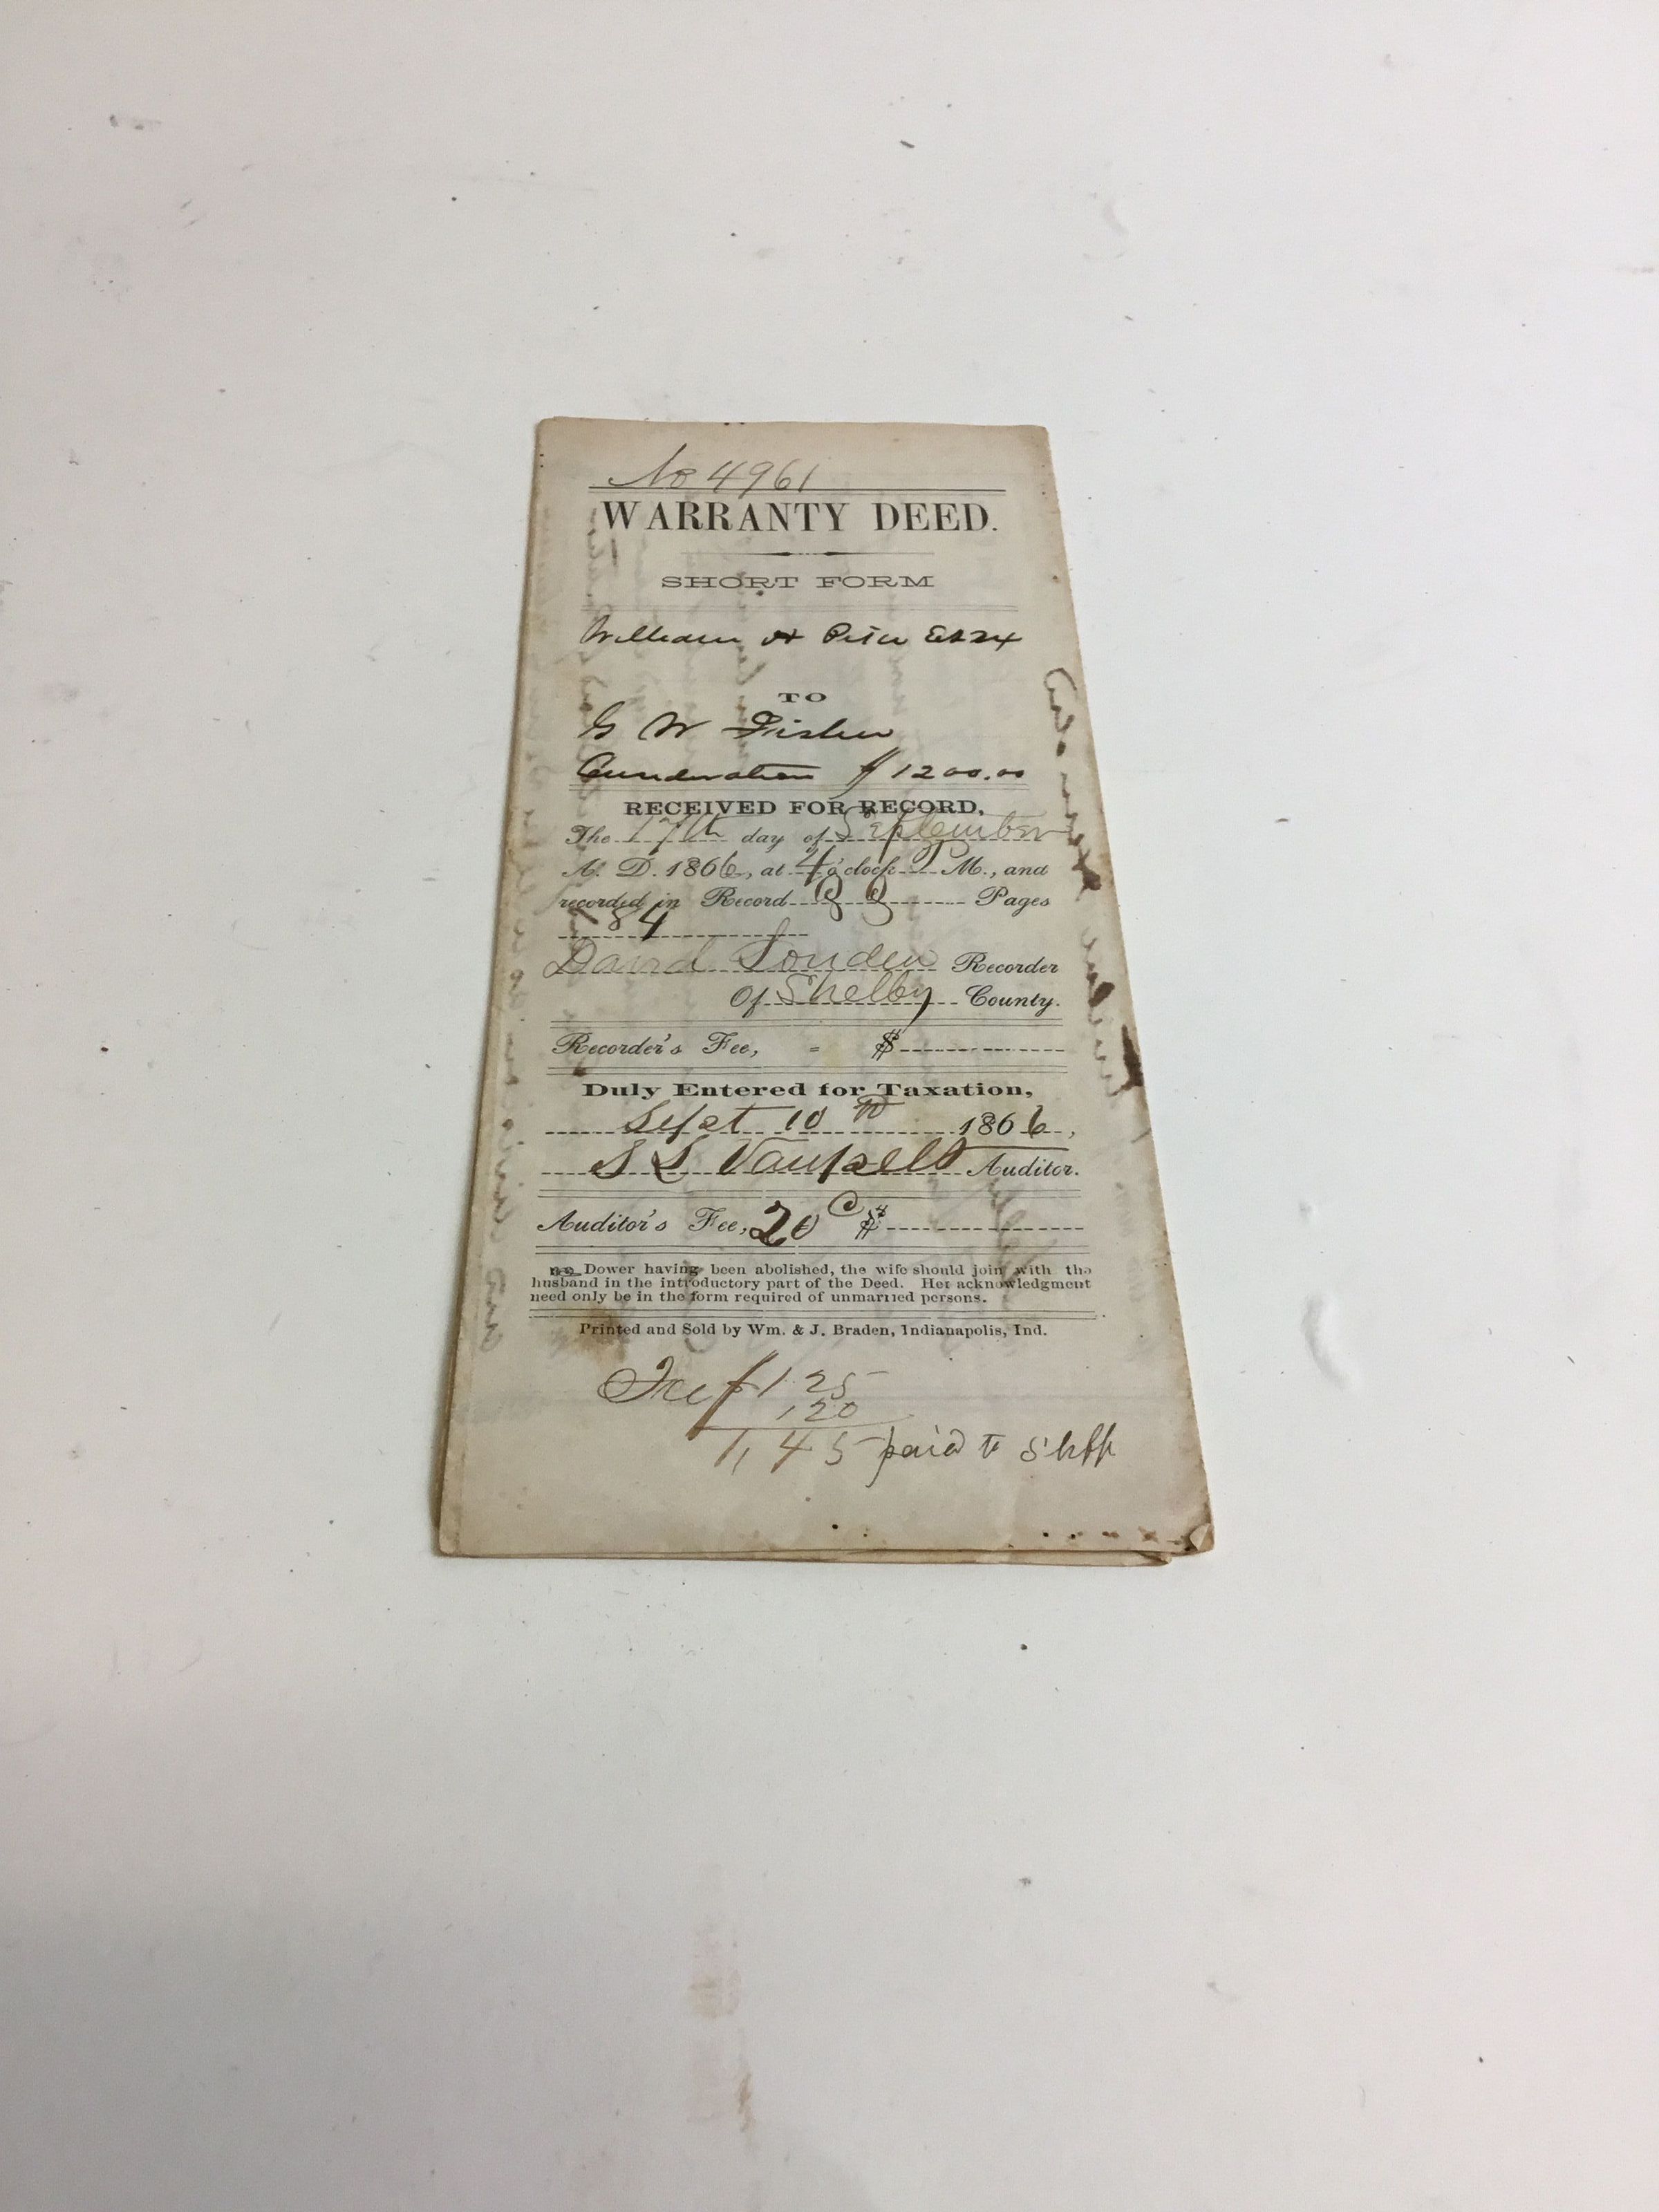 No 4961
WARRANTY DEED.
SHORT FORM
William & Peter
TO
G W Fisher
Consideration $1200.00
RECEIVED FOR RECORD,
The 17th day of September
A. D. 1866, at 4 o'clock P M., and
recorded in Record Pages
84
David Louden Recorder
Of Shelby County.
Recorder's Fee, - $
Duly Entered for Taxation,
Sept 10th 1866,
S L Vanpelt Auditor.
Auditor's Fee, 20 cts $
Dower having been abolished, the wife should join with the
husband in the introductory part of the Deed. Her acknowledgment
need only be in the form required of unmarried persons.
Printed and Sold by Wm. & J. Braden, Indianapolis, Ind.
Fee $1.25
,20
1,45 paid to